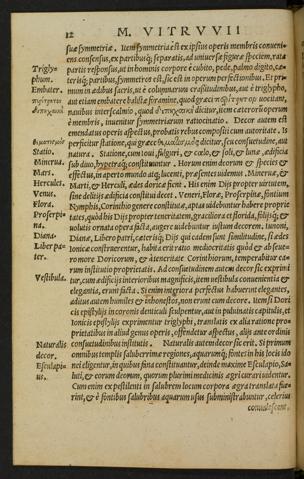 12 M. VITRVVII
suæ symmetriæ. Item symmetria est ex ipsius operis membris conueni
ens consensus, ex partibusq́; separatis, ad uniuersæ figuræ speciem, rata
Triglyphum. partis responsus, ut in hominis corpore è cubito, pede, palmo digito, cæ
terisq́; partibus, symmetros est, sic est in operum perfectionibus. Et pri
Embater. mum in ædibus sacris, ut è columnarum crassitudinibus, aut è triglypho,
aut etiam embatere balistæ foramine, quod græci
nauibus interscalmio, quod dicitur, item cæterorũ operum
è membris, inuenitur symmetriarum ratiocinatio. Decor autem est
emendatus operis aspectus, probatis rebus compositi cum autoritate. Is
perficitur statione, quod græcè dicitur, seu consuetudine, aut
Statio. natura. Statione, cum Ioui, fulguri, & cœlo, & soli, & lunæ, ædificia
Minerua. sub diuo, hypæthraq́; constituuntur. Horum enim deorum & species &
Mars. effectus, in aperto mundo atq́; lucenti, præsentes uidemus. Mineruæ, &
Hercules. Marti, & Herculi, ædes doricæ fient. His enim Dijs propter uirtutem,
Venus. sine delitijs ædificia constitui decet. Veneri, Floræ, Proserpinæ, fontium
Flora. Nymphis, Corinthio genere constitutæ, aptas uidebuntur habere proprie
Proserpina. tates, quòd his Dijs propter teneritatem, graciliora et florida, folijsq́; &
uolutis ornata opera facta, augere uidebuntur iustum decorem. Iunoni,
Diana. Dianæ, Libero patri, cæterisq́; Dijs qui eadem sunt similitudine, si ædes
Liber pater. Ionicæ construerentur, habita erit ratio mediocritatis quòd & ab seue-
ro more Doricorum, & à teneritate Corinthiorum, temperabitur ea-
rum institutio proprietatis. Ad consuetudinem autem decor sic exprimi
Vestibula. tur, cum ædificijs interioribus magnificis, item uestibula conuenientia &
elegantia, erunt facta. Si enim interiora perfectus habuerint elegantes,
aditus autem humiles & inhonestos, non erunt cum decore. Item si Dori
cis epistylijs in coronis denticuli sculpentur, aut in puluinatis capitulis, et
Ionicis epistylijs exprimentur triglyphi, translatis ex alia ratione pro
prietatibus in aliud genus operis, offendetur aspectus, alijs ante ordinis
consuetudinibus institutis. Naturalis autem decor sic erit. Si primum
Naturalis decor. omnibus templis saluberrimæ regiones, aquarumq́; fontes in his locis ido
nei eligentur, in quibus fana constituantur, deinde maxime Esculapio, Sa-
Esculapius. luti, & eorum deorum, quorum plurimi medicinis ægri curari uidentur.
Cum enim ex pestilenti in salubrem locum corpora ægra translata fue-
rint, & è fontibus salubribus aquarum usus subministrabuntur, celerius
conualescent,